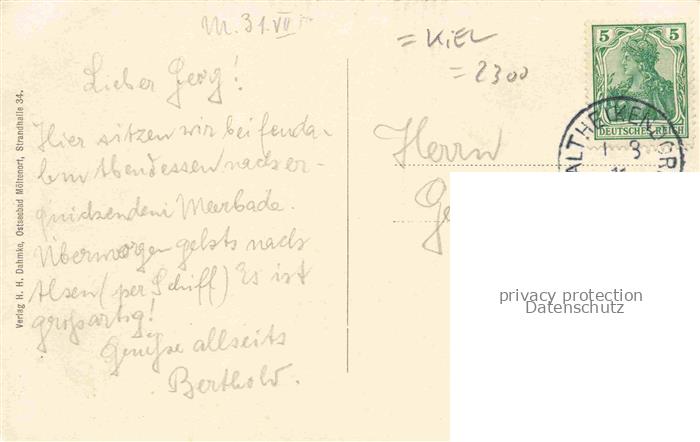 M. 31.VII
= KiEL
= 2300
Lieber Georg!
Hier sitzen wir bei fenda-
lem Abendessen nach er-
quickendem Meerbade.
Übermorgen gehts nach
Alsen (per Schiff) Es ist
großartig!
Grüße allseits
Berthold.
Verlag H. H. Dahmke, Ostseebad Möltenort, Strandhalle 34.
Herrn
5 5
DEUTSCHES REICH
ALTHEIKENDORF
1 8
privacy protection
Datenschutz